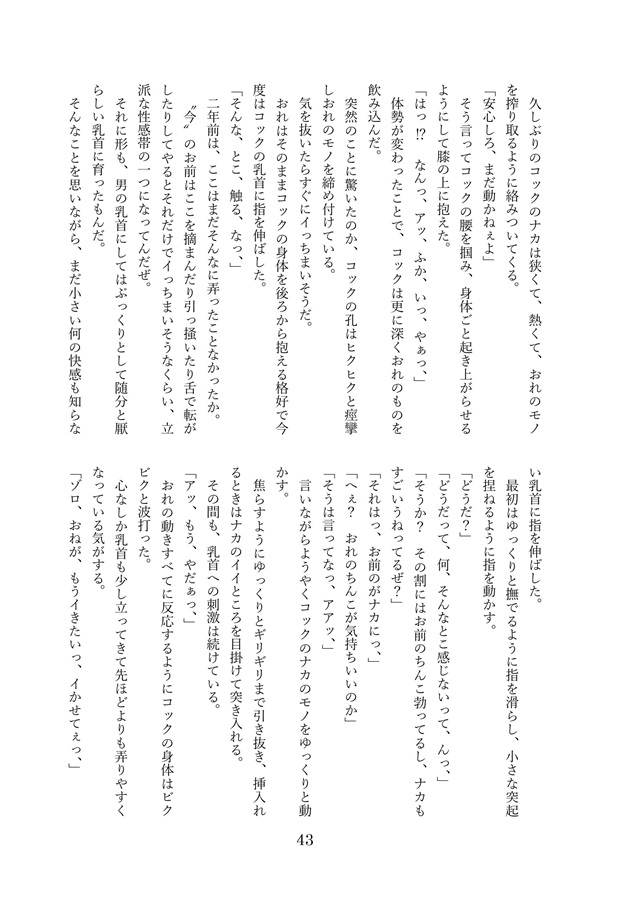 久しぶりのコックのナカは狭くて、熱くて、おれのモノ
を搾り取るように絡みついてくる。
「安心しろ、まだ動かねぇよ」
そう言ってコックの腰を掴み、身体ごと起き上がらせる
ようにして膝の上に抱えた。
「はっ⁉　なんっ、アッ、ふか、いっ、やぁっ、」
体勢が変わったことで、コックは更に深くおれのものを
飲み込んだ。
突然のことに驚いたのか、コックの孔はヒクヒクと痙攣
しおれのモノを締め付けている。
気を抜いたらすぐにイっちまいそうだ。
おれはそのままコックの身体を後ろから抱える格好で今
度はコックの乳首に指を伸ばした。
「そんな、とこ、触る、なっ、」
二年前は、ここはまだそんなに弄ったことなかったか。
〝今〟のお前はここを摘まんだり引っ掻いたり舌で転が
したりしてやるとそれだけでイっちまいそうなくらい、立
派な性感帯の一つになってんだぜ。
それに形も、男の乳首にしてはぷっくりとして随分と厭
らしい乳首に育ったもんだ。
そんなことを思いながら、まだ小さい何の快感も知らな
い乳首に指を伸ばした。
最初はゆっくりと撫でるように指を滑らし、小さな突起
を捏ねるように指を動かす。
「どうだ？」
「どうだって、何、そんなとこ感じないって、んっ、」
「そうか？　その割にはお前のちんこ勃ってるし、ナカも
すごいうねってるぜ？」
「それはっ、お前のがナカにっ、」
「へぇ？　おれのちんこが気持ちいいのか」
「そうは言ってなっ、アアッ、」
言いながらようやくコックのナカのモノをゆっくりと動
かす。
焦らすようにゆっくりとギリギリまで引き抜き、挿入れ
るときはナカのイイところを目掛けて突き入れる。
その間も、乳首への刺激は続けている。
「アッ、もう、やだぁっ、」
おれの動きすべてに反応するようにコックの身体はビク
ビクと波打った。
心なしか乳首も少し立ってきて先ほどよりも弄りやすく
なっている気がする。
「ゾロ、おねが、もうイきたいっ、イかせてぇっ、」
43